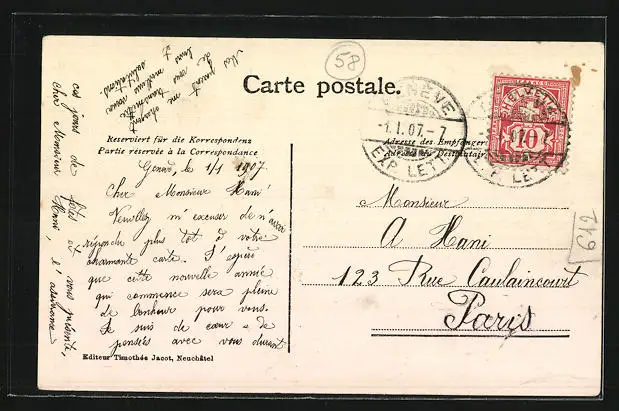 58
Carte postale.
Reserviert für die Korrespondenz
Partie réservée à la Correspondance
Adresse des Empfängers
Adresse du Destinataire
GENÈVE
-1.I.07.-7
EXP. LETT.
HELVETIA
FRANCO
10
612
Genève, le 1/1 1907
Cher Monsieur Hani
Veuillez m'excuser de n'avoir
répondu plus tôt à votre
charmante carte. J'espère
que cette nouvelle année
qui commence sera pleine
de bonheur pour vous.
Je suis de cœur & de
pensées avec vous durant
ces jours de fêtes et vous présente,
cher Monsieur Hani, l'assurance
de mes meilleurs
salutations.
Monsieur
A Hani
123 Rue Caulaincourt
Paris
Editeur Timothée Jacot, Neuchâtel